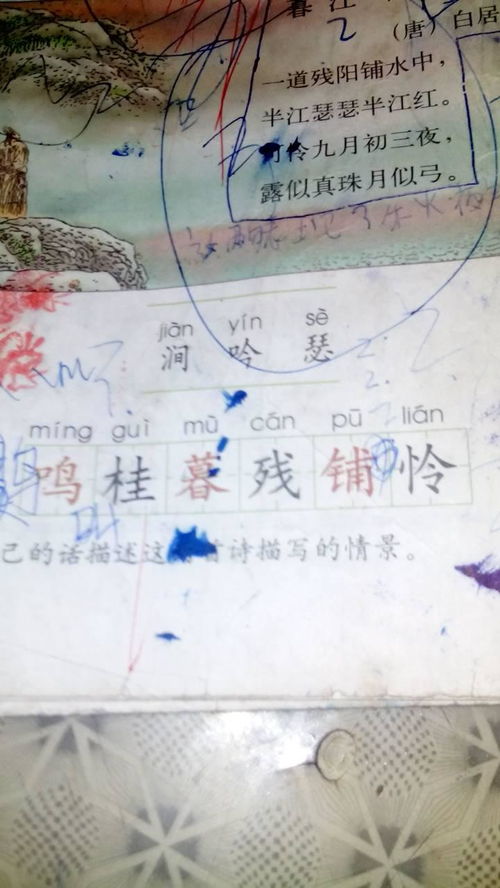 暮江
（唐）白居
一道残阳铺水中，
半江瑟瑟半江红。
可怜九月初三夜，
露似真珠月似弓。
jiàn yín sè
涧 吟 瑟
míng guì mù cán pū lián
鸣 桂 暮 残 铺 怜
己的话描述这首诗描写的情景。